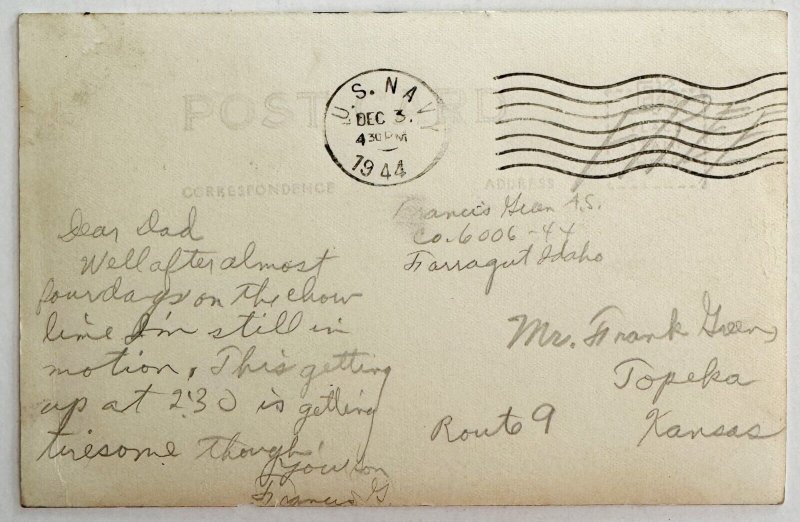 POST CARD
U.S. NAVY
DEC 3.
4 30 PM
1944
CORRESPONDENCE
ADDRESS
Dear Dad
Well after almost
four days on the chow
line I'm still in
motion. This getting
up at 2:30 is getting
tiresome though!
Your son
Francis G
Francis A.S.
Co. 6006-44
Farragut Idaho
Mr. Frank
Topeka
Route 9 Kansas